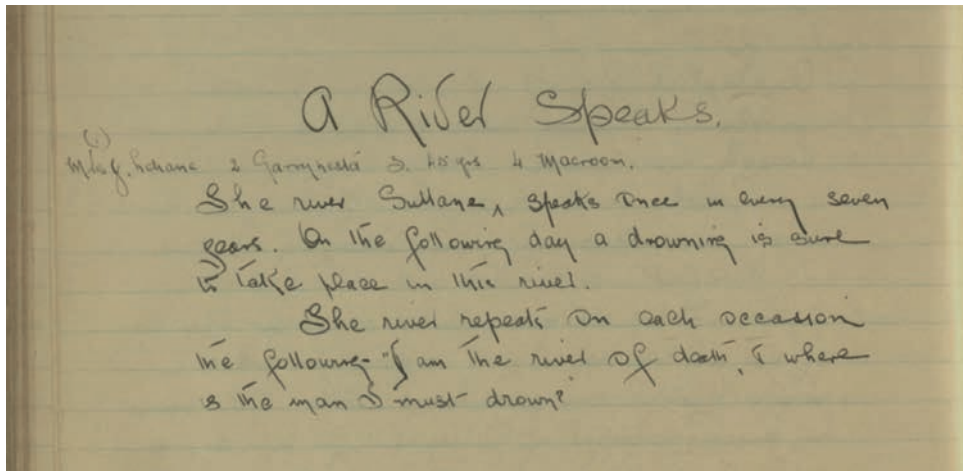 A River Speaks.
(1)
2 3. 45 yrs 4 Macroom.
The river Sullane, speaks once in every seven
years. On the following day a drowning is sure
to take place in this river.
The river repeats on each occasion
the following - "I am the river of death, & where
is the man I must drown?